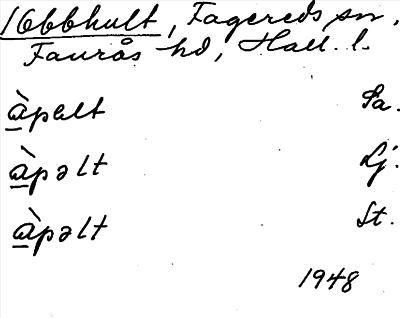 1Obbhult, Fagereds sn,
Faurås hd, Hall. l.
àpalt Sa.
àpəlt Lj.
àpəlt St.
1948